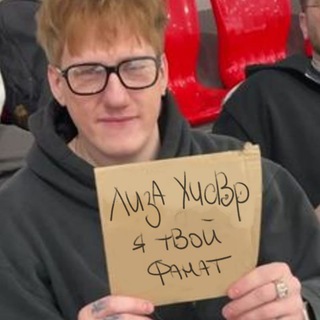 ЛИЗА ХИСВР
Я ТВОЙ
ФАНАТ